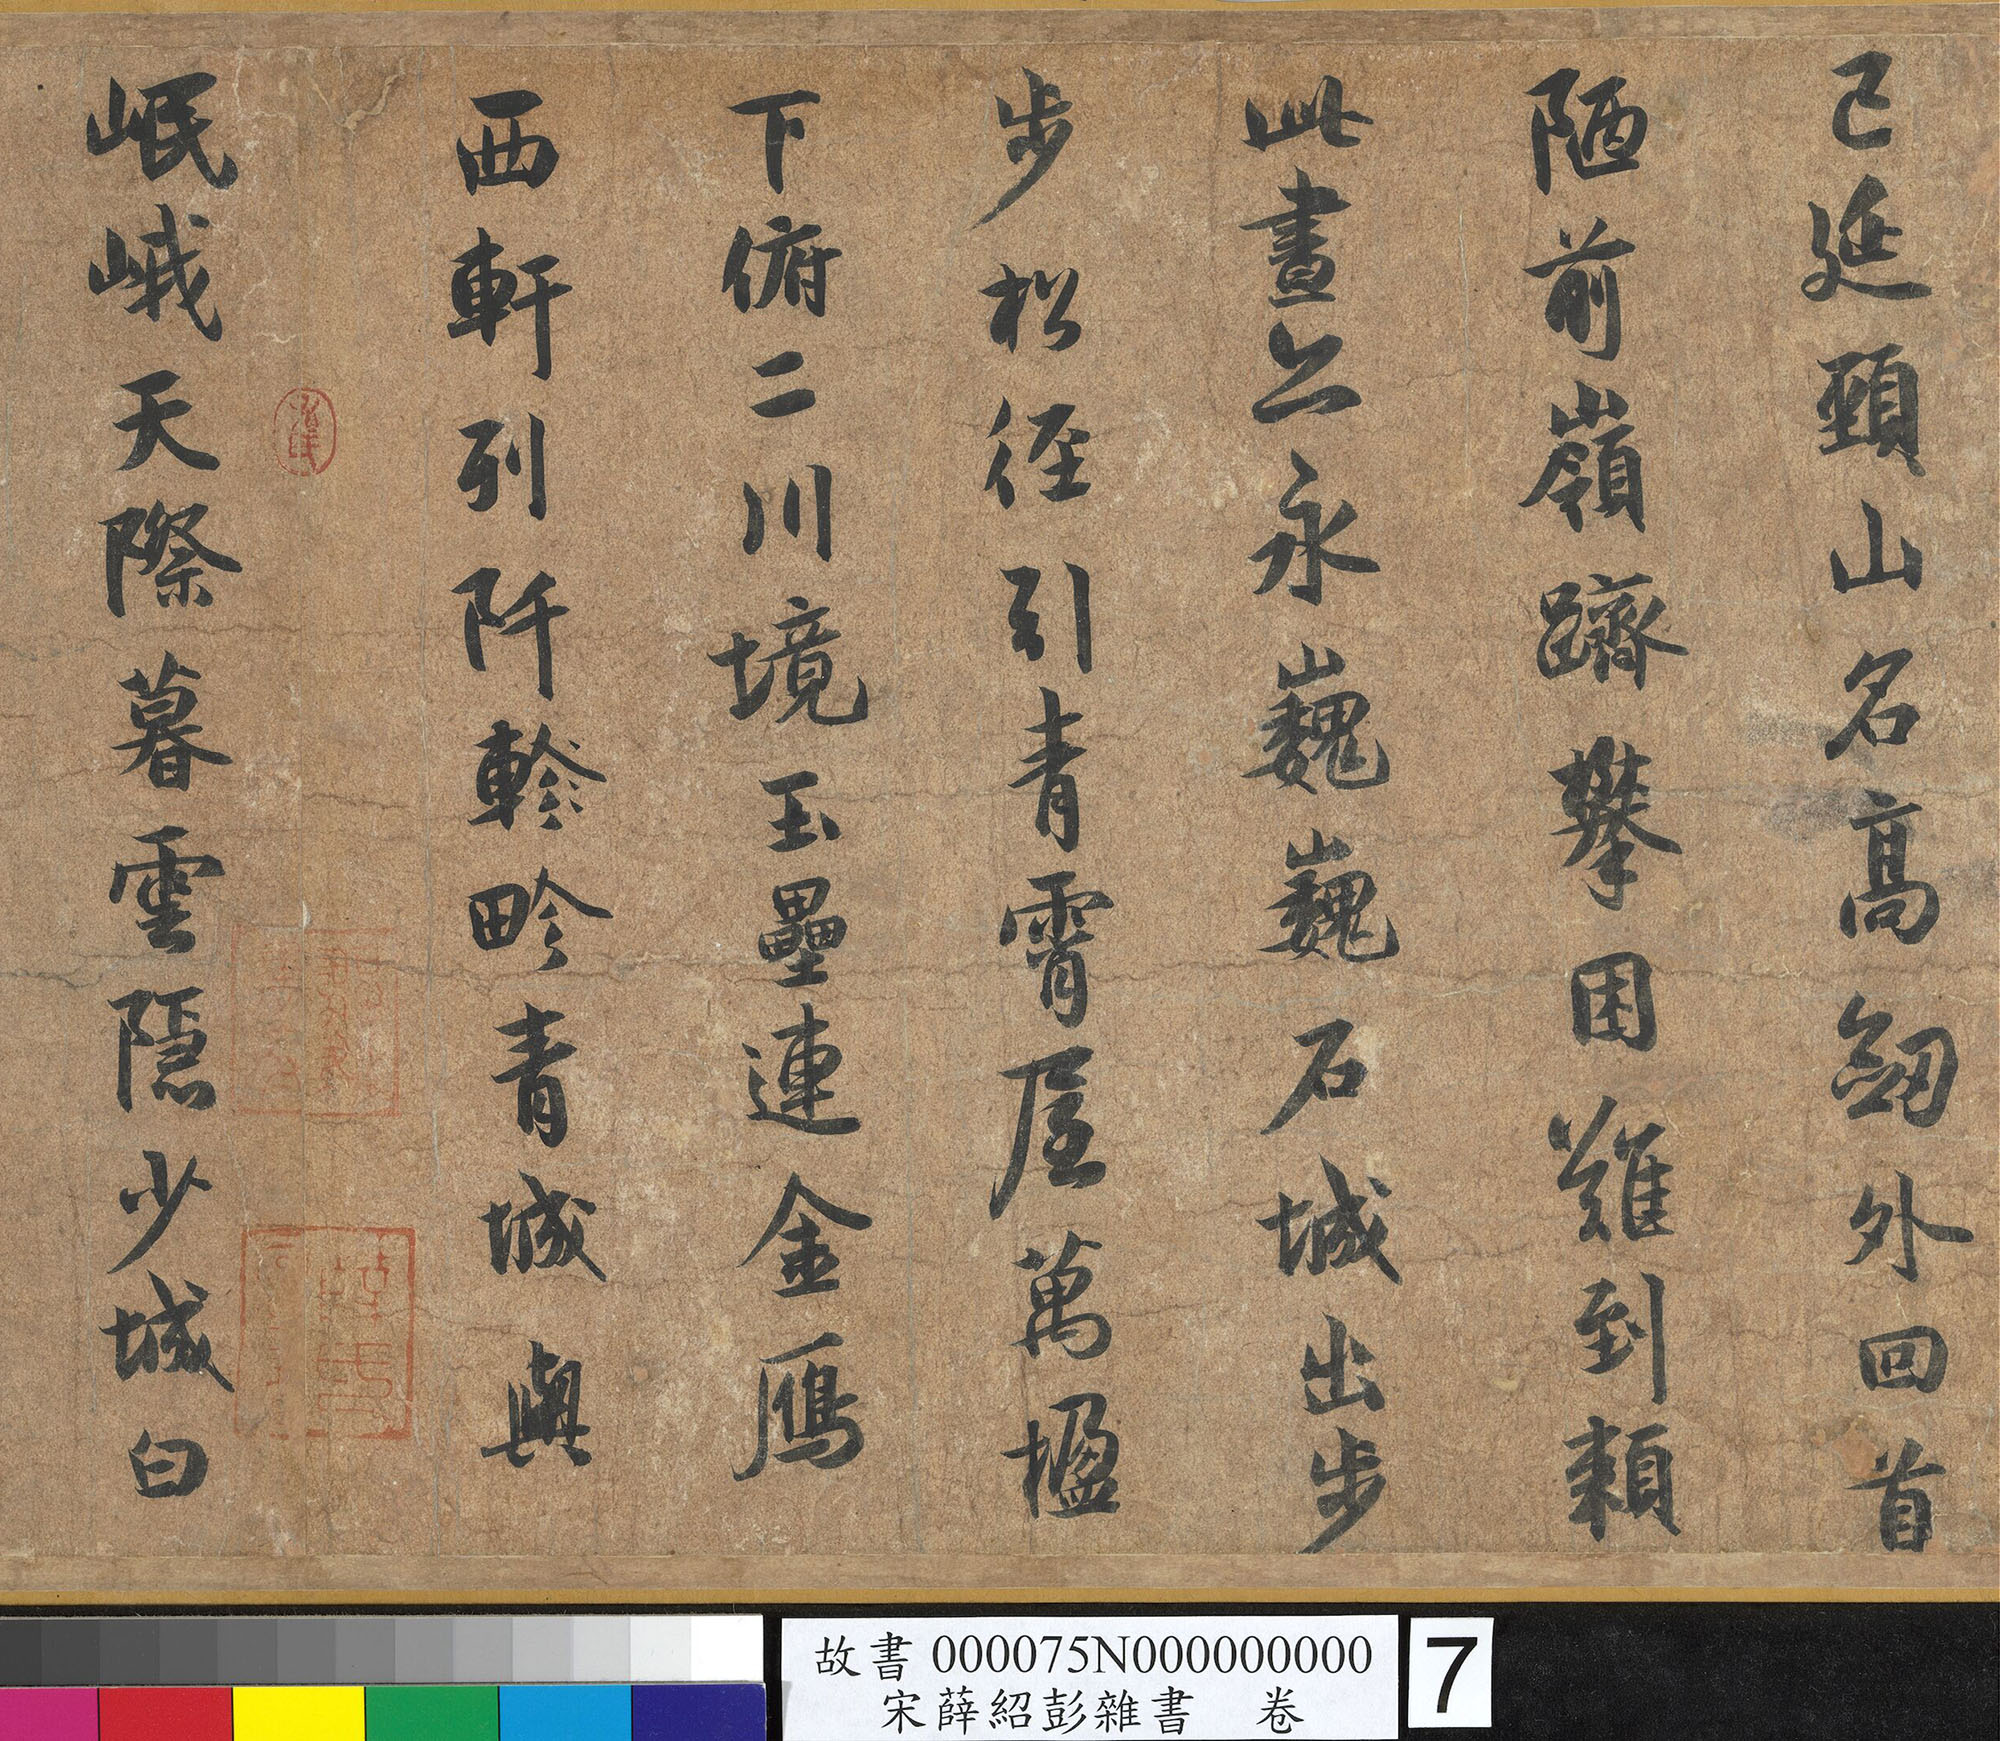 已延頸山名高劒外回首
陋前嶺躋攀困難到頼
此晝公永巍巍石城出步
步松徑引青霄屋萬楹
下俯二川境玉壘連金鴈
西軒列阡軫畛青城與
岷峨天際暮雲隱少城白
故書 000075N000000000
宋薛紹彭雜書 卷
7